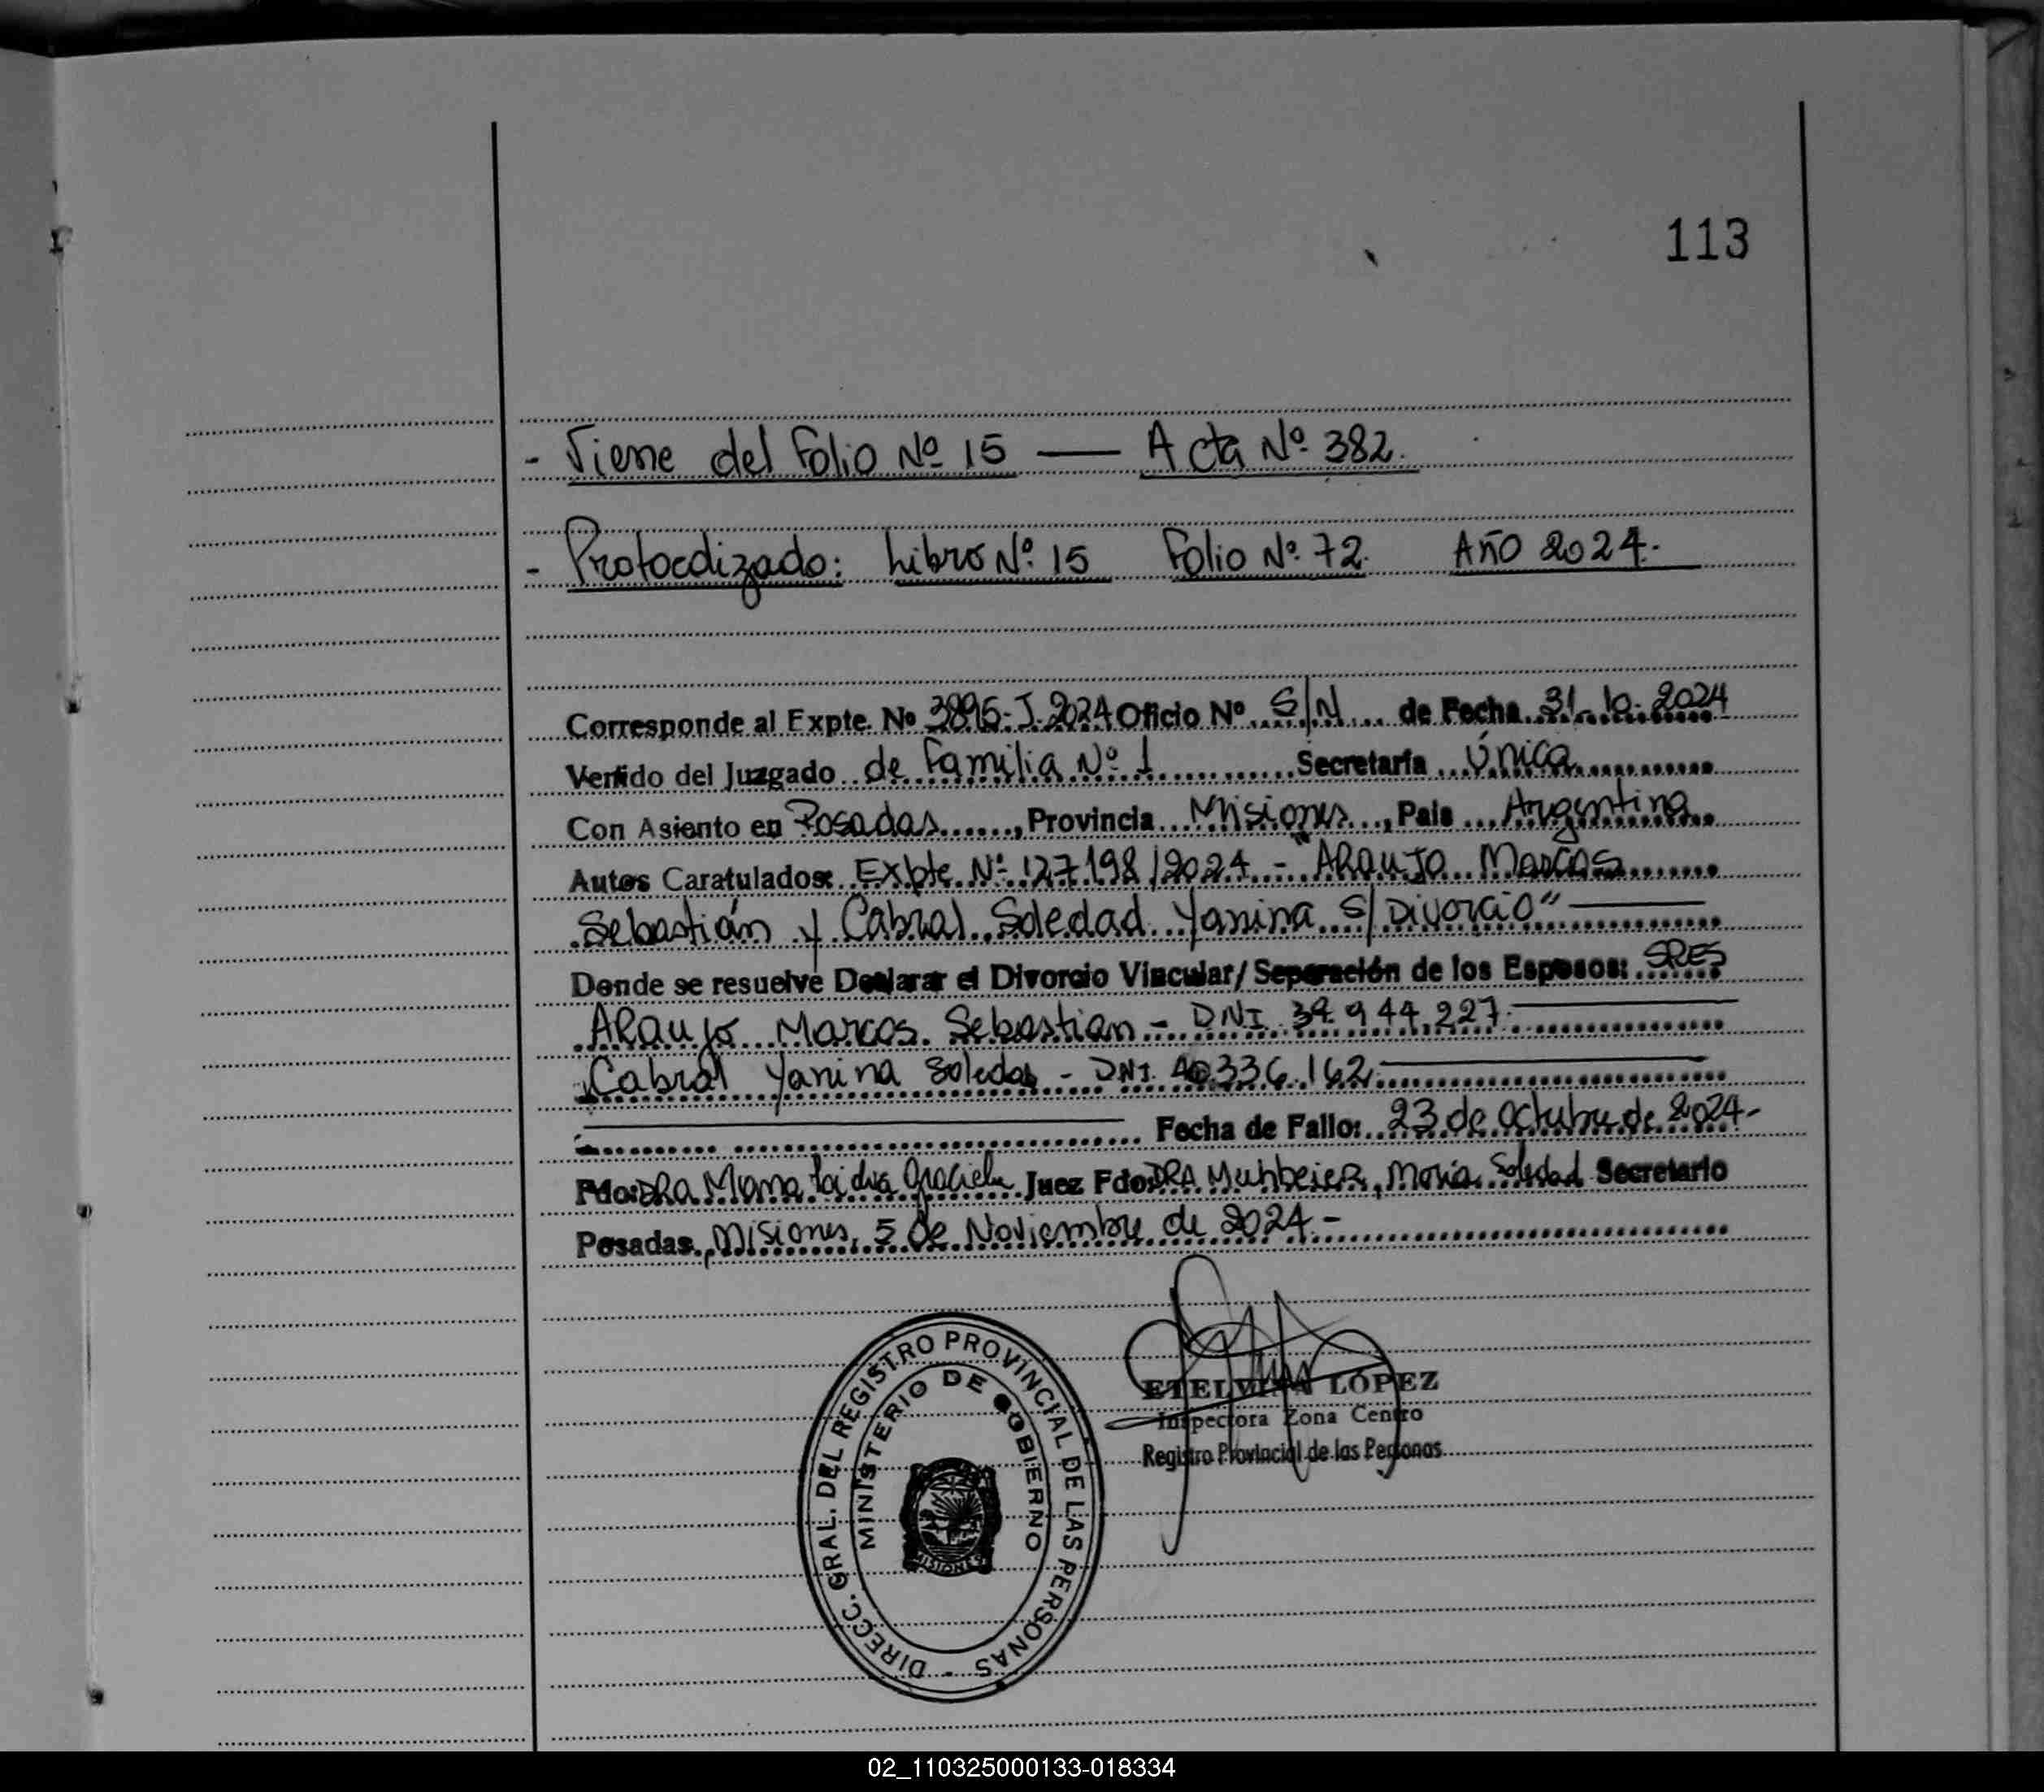 113
- Viene del Folio Nº 15 — Acta Nº 382.
- Protocolizado: Libro Nº 15 Folio Nº 72. Año 2024.
Corresponde al Expte. Nº 3895-J-2024 Oficio Nº S/N de Fecha 31-10-2024
Vertido del Juzgado de Familia Nº 1 Secretaría Única
Con Asiento en Posadas, Provincia Misiones, País Argentina
Autos Caratulados: Expte Nº 127198/2024 - "ARAUJO Marcos
Sebastián y Cabral Soledad Yanina S/ Divorcio"
Donde se resuelve Declarar el Divorcio Vincular/Separación de los Esposos: SRES
ARAUJO Marcos Sebastian - DNI 39.944.227
Cabral Yanina Soledad - DNI. 40.336.162
Fecha de Fallo: 23 de Octubre de 2024-
Fdo: DRA Graciela Juez Fdo: DRA María Soledad Secretario
Posadas, Misiones, 5 de Noviembre de 2024.-
ETELVINA LÓPEZ
Inspectora Zona Centro
Registro Provincial de las Personas
DIRECC. GRAL. DEL REGISTRO PROVINCIAL DE LAS PERSONAS -
MINISTERIO DE GOBIERNO
MISIONES
02_110325000133-018334